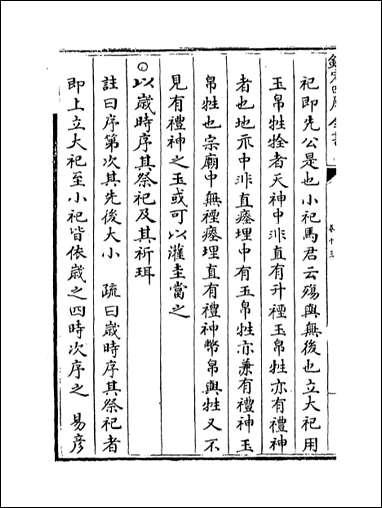 欽定四庫全書
卷十三
祀即先公是也小祀馬君云殤與無後也立大祀用
玉帛牲牷者天神中非直有升禋玉帛牲亦有禮神
者也地示中非直瘞埋中有玉帛牲亦兼有禮神玉
帛牲也宗廟中無禋瘞埋直有禮神幣帛與牲又不
見有禮神之玉或可以灌圭當之
以歲時序其祭祀及其祈珥
註曰序第次其先後大小 疏曰歲時序其祭祀者
即上立大祀至小祀皆依歲之四時次序之 易彥